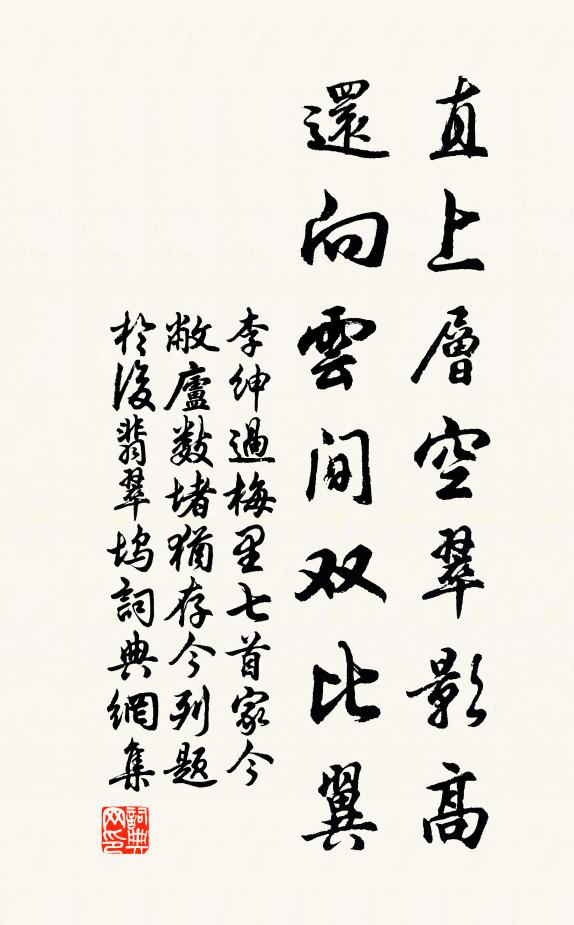 直上層空翠影高
還向雲間双比翼
李紳過梅里七首家今
敝廬數堵猶存今列題
於後翡翠塢詞典網集
詞典
网印